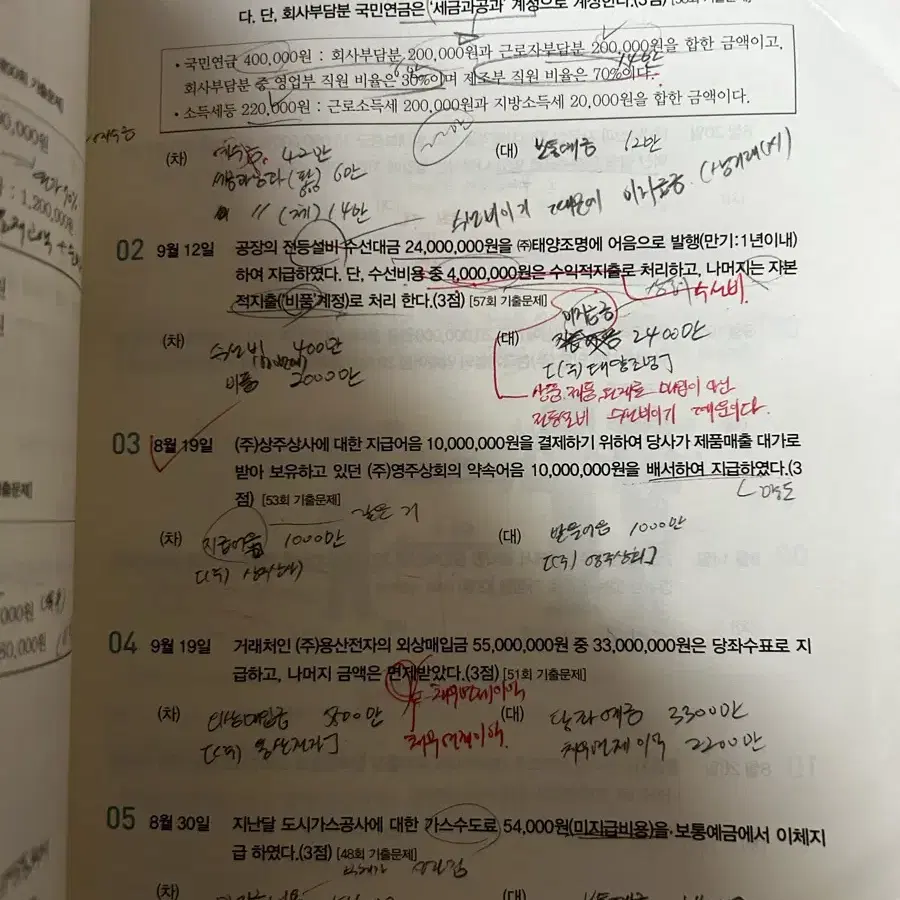 다. 단, 회사부담분 국민연금은 '세금과공과' 계정으로 계상한다.(3점)
• 국민연금 400,000원 : 회사부담분 200,000원과 근로자부담분 200,000원을 합한 금액이고,
회사부담분 중 영업부 직원 비율은 30%이며 제조부 직원 비율은 70%이다.
• 소득세등 220,000원 : 근로소득세 200,000원과 지방소득세 20,000원을 합한 금액이다.
(차) 예수금 42만 (대) 보통예금
세금과공과 (판) 6만
〃 (제) 14만
수선비이기 때문에 미지급금
02 9월 12일 공장의 전등설비 수선대금 24,000,000원을 ㈜태양조명에 어음으로 발행(만기:1년이내)
하여 지급하였다. 단, 수선비용 중 4,000,000원은 수익적지출로 처리하고, 나머지는 자본
적지출('비품'계정)로 처리 한다.(3점) [57회 기출문제]
수선비.
미지급금
(차) 수선비 400만 (대) 2400만
비품 2000만 [(주)태양조명]
상품, 제품, 원재료 매입이 아닌
전등설비 수선비이기 때문이다.
03 8월 19일 (주)상주상사에 대한 지급어음 10,000,000원을 결제하기 위하여 당사가 제품매출 대가로
받아 보유하고 있던 (주)영주상회의 약속어음 10,000,000원을 배서하여 지급하였다.(3
점) [53회 기출문제]
양도
갚은 거
(차) 지급어음 1000만 (대) 받을어음 1000만
[(주)상주상사] [(주)영주상회]
04 9월 19일 거래처인 (주)용산전자의 외상매입금 55,000,000원 중 33,000,000원은 당좌수표로 지
급하고, 나머지 금액은 면제받았다.(3점) [51회 기출문제]
채무면제이익
(차) 외상매입금 5500만 (대) 당좌예금 3300만
[(주)용산전자] 채무면제이익. 채무면제이익 2200만
05 8월 30일 지난달 도시가스공사에 대한 가스수도료 54,000원(미지급비용)을 보통예금에서 이체지
급 하였다.(3점) [48회 기출문제]
(차) (대) 보통예금